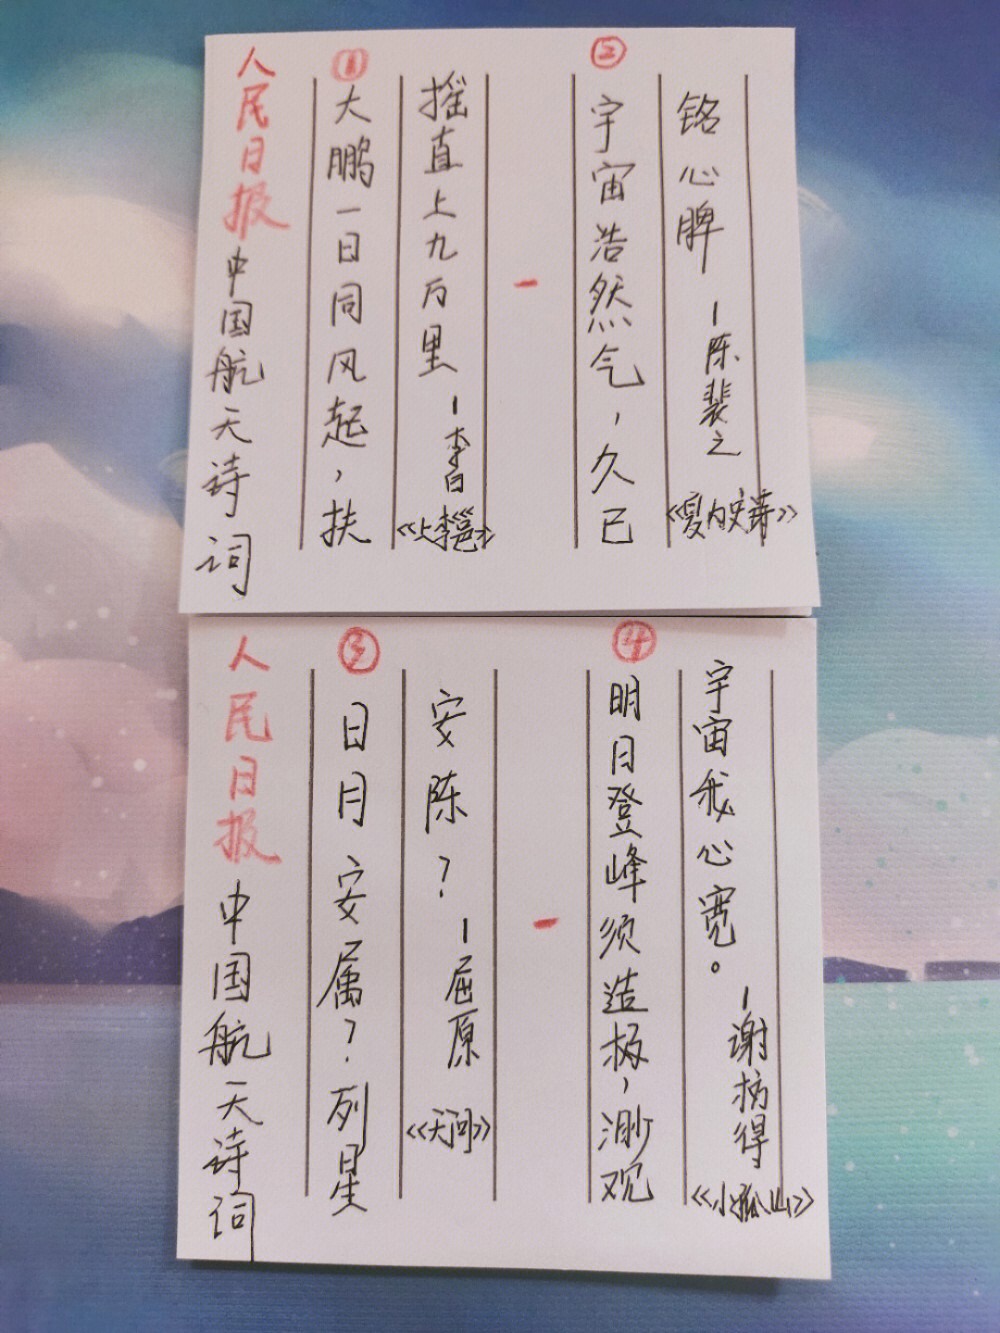 人民日报中国航天诗词
①
大鹏一日同风起，扶
摇直上九万里-李白
《上李邕》
-
②
宇宙浩然气，久已
铭心脾-陈裴之
《夏内史墓》
人民日报中国航天诗词
③
日月安属？列星
安陈？-屈原
《天问》
-
④
明日登峰须造极，渺观
宇宙我心宽。-谢枋得
《小孤山》